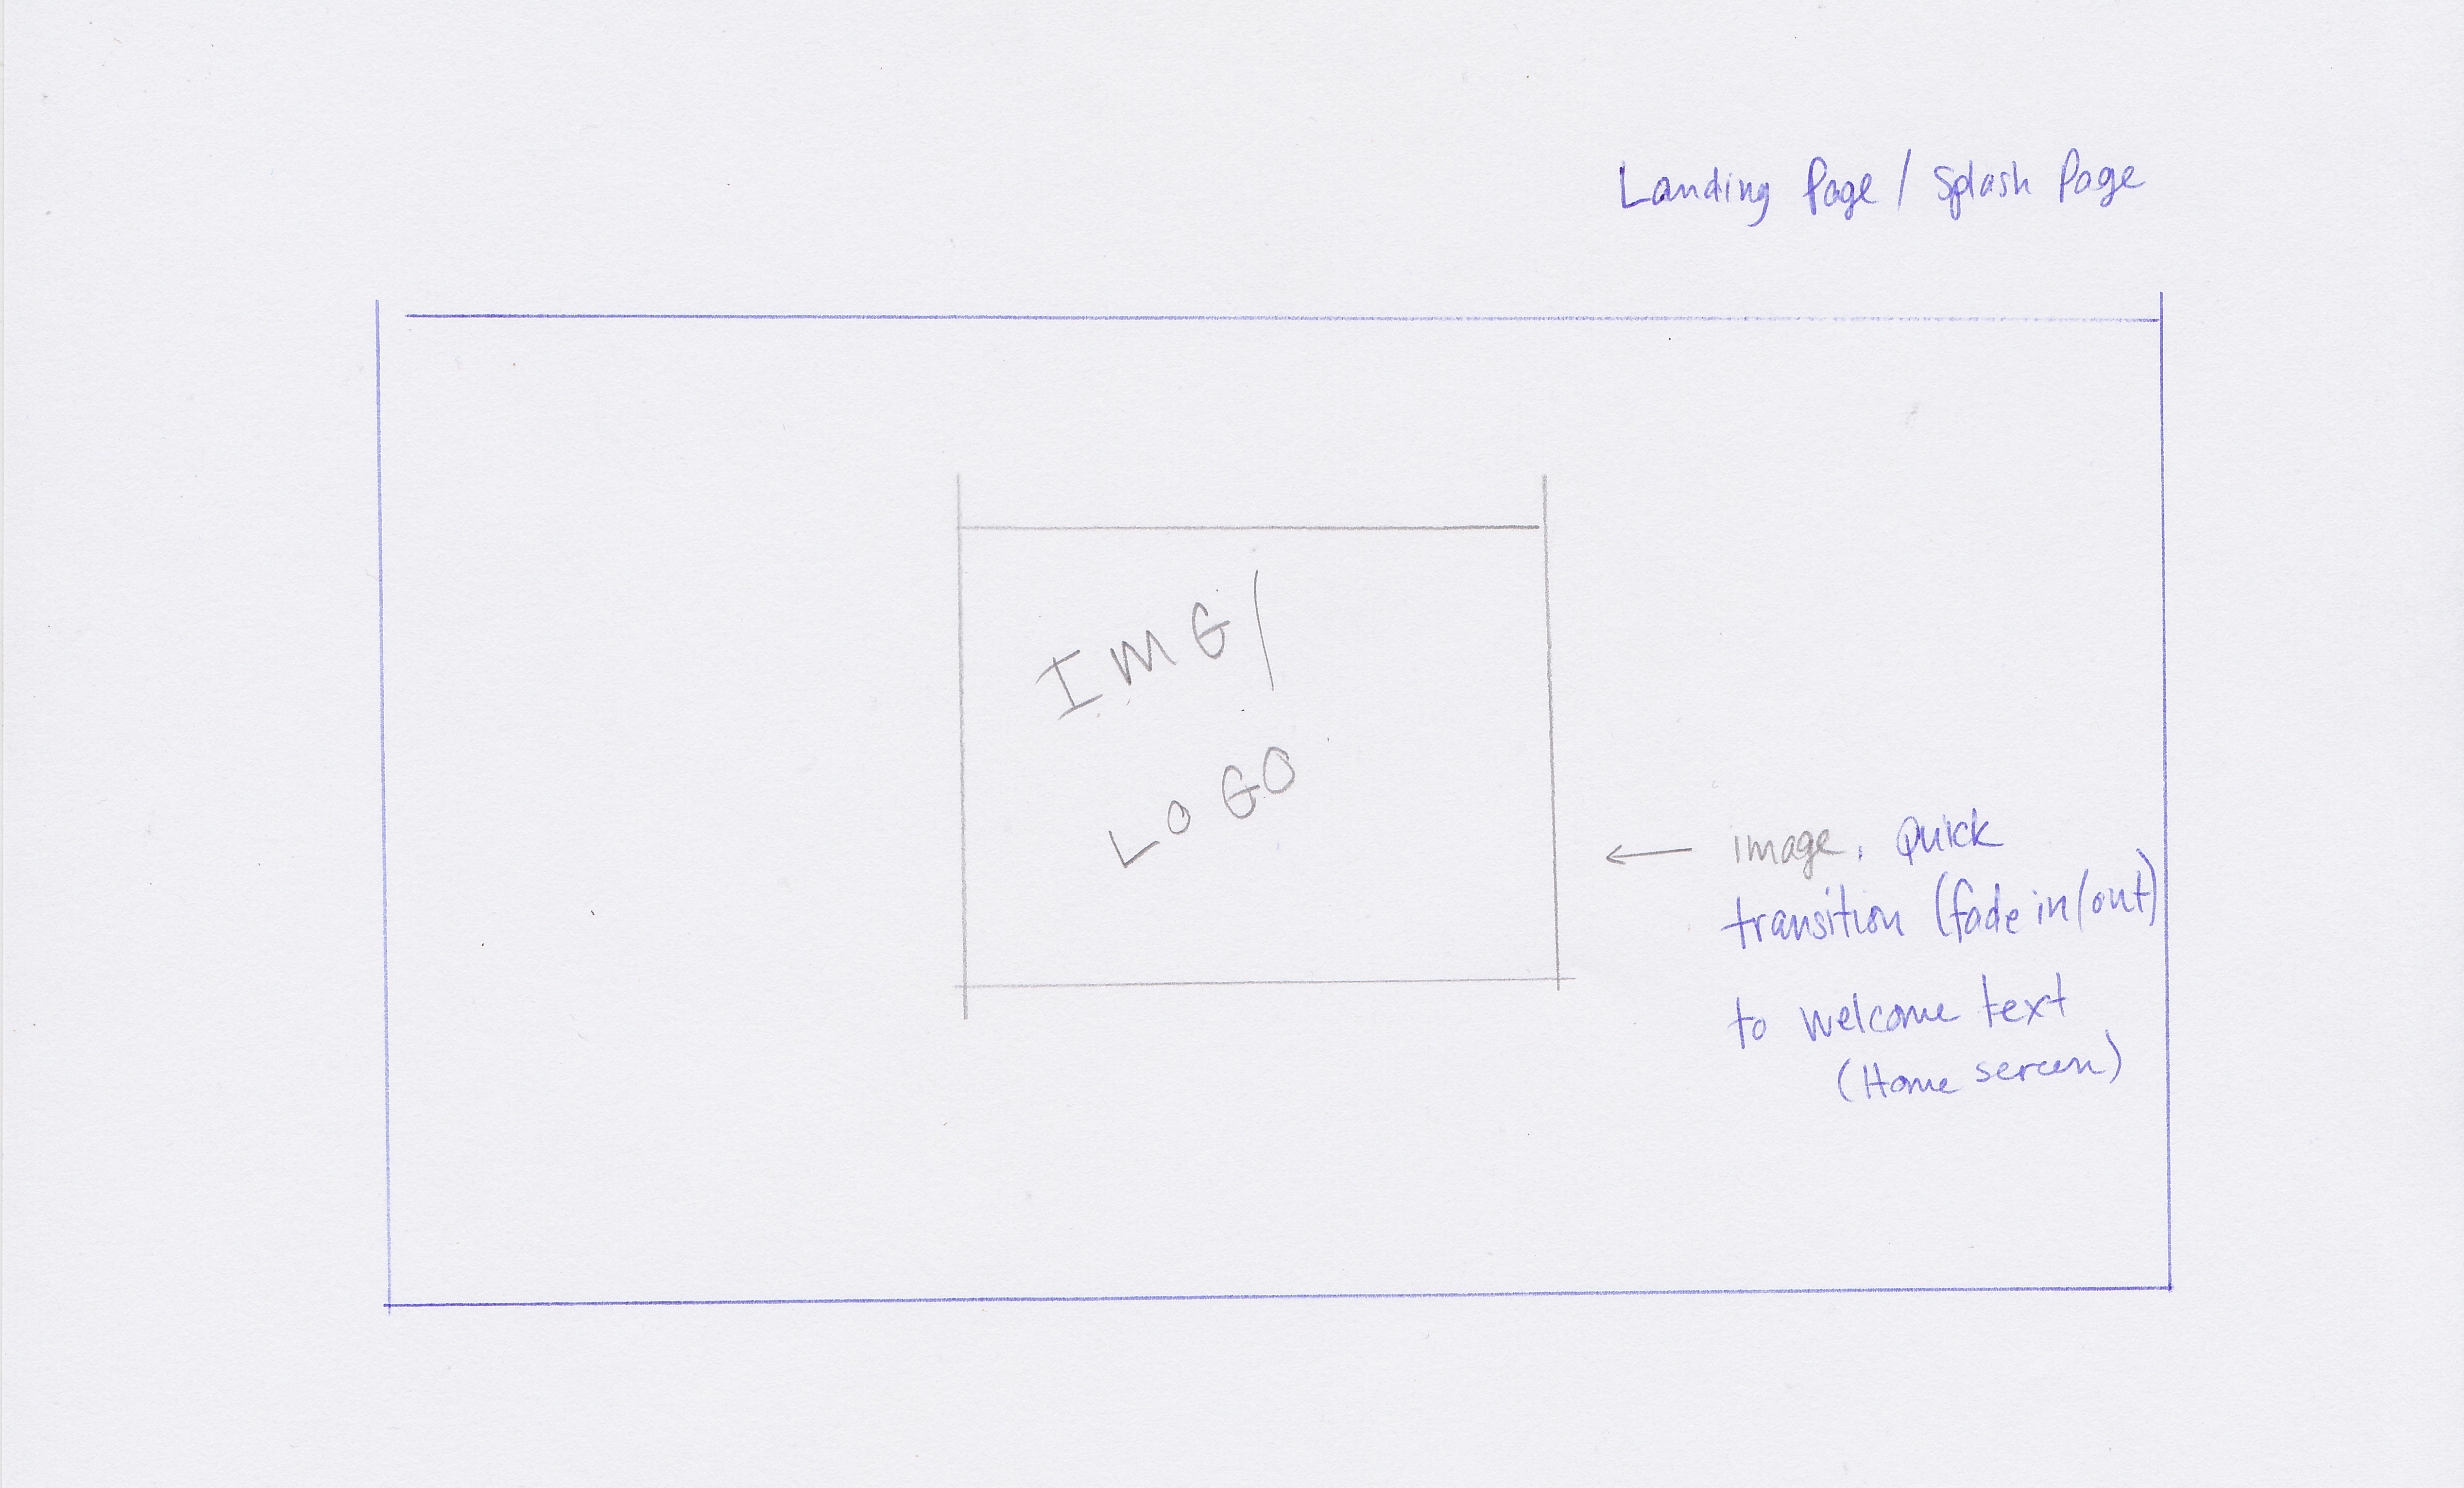 Landing Page / Splash Page
IMG/
LOGO
image, Quick
transition (fade in/out)
to welcome text
(Home screen)